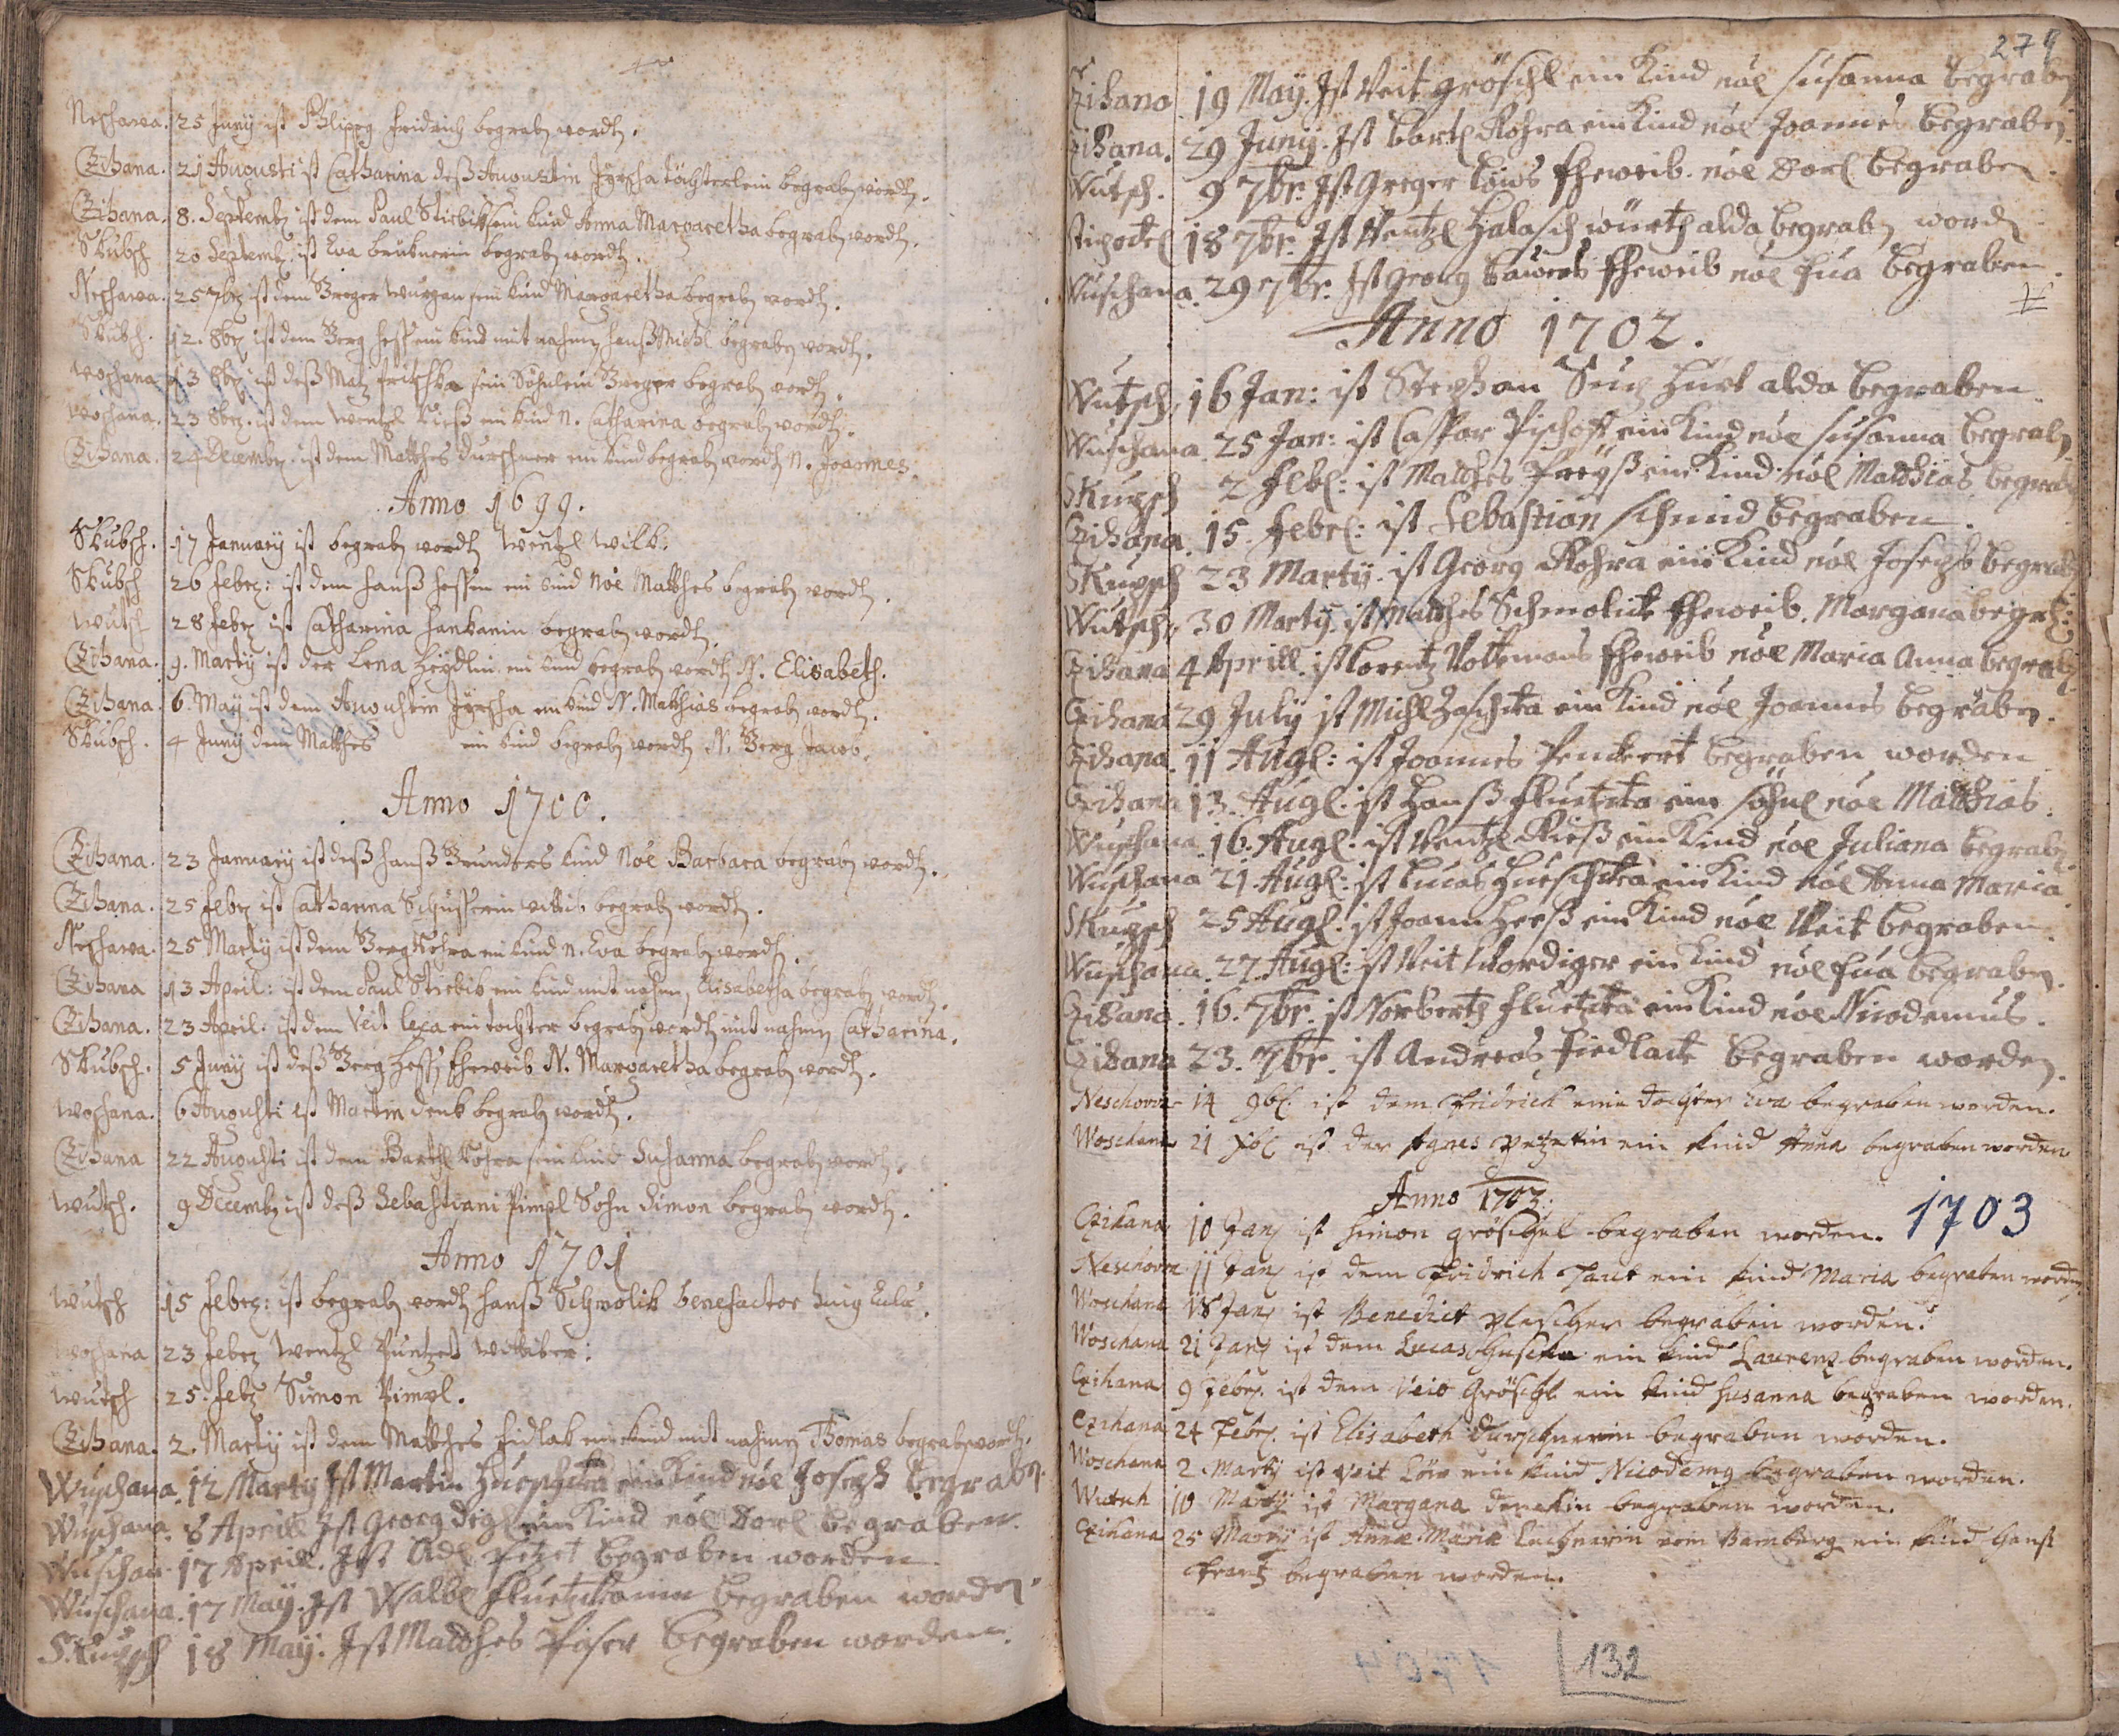 Neschawa. 25 Juny ist Philipp fridrich begrab wordn.
Czihana. 21 Augusti ist Catharina deß Augustin Jyrscha töchterlein begrab wordn.
Czihana. 8. Septemb ist dem Paul Strebik sein kind Anna Margaretha begrab wordn.
Skubsch 20 Septemb: ist Eva brubnerin begrab wordn.
Neschawa. 25 7br ist dem Greger sein kind Margaretha begrab wordn.
Skubsch. 12. 8br ist dem Georg Hess ein kind mit nahmen Hanß Michl begraben wordn.
Woschana 13 8br ist deß Matz sein Söhnlein Greger begrab wordn.
Woschana. 23 8br. ist dem Wentzl Rieß ein kind N. Catharina begrab wordn.
Czihana. 24 Decemb. ist dem Matthes Durschner ein kind begrab wordn N. Joannes.
Anno 1699.
Skubsch. 17 January ist begrab wordn Wentzl Wilk.
Skubsch 26 febr: ist dem Hanß Hessen ein kind Nõe Matthes begrab wordn.
Wutsch 28 febr ist Catharina Hankanin begrab wordn.
Czihana. 9. Marty ist der Lena Heydlin ein kind begrab wordn N. Elisabeth.
Czihana 6. May ist dem Augustin Jyrscha ein kind N. Matthias begrab wordn.
Skubsch. 4 Juny dem Matthes ein kind begrab wordn N. Georg Jacob.
Anno 1700.
Czihana. 23 January ist deß Hanß kind Nõe Barbara begrab wordn.
Czihana. 25 febr ist Catharina Schusserin begrab wordn.
Neschawa. 25 Marty ist dem Georg Kohra ein kind n. Eva begrab wordn.
Czihana 13 April: ist dem Paul Strebik ein kind mit nahmen Elisabetha begrab wordn.
Czihana. 23 April: ist dem Veit lexa ein tochter begrab wordn mit nahmen Catharina.
Skubsch. 5 Juny ist deß Georg Hess Eheweib N. Margaretha begrab wordn.
Woschana. 6 Augusti ist Martin Denk begrab wordn.
Czihana 22 Augusti ist dem Bartl Kohra sein kind Susanna begrab wordn.
Wutsch. 9 Decemb ist deß Sebastiani Pimpl Sohn Simon begrab wordn.
Anno 1701
Wutsch 15 febr: ist begrab wordn Hanß Schmolik benefactor
Woschana 23 febr Wentzl Wittiber:
Wutsch 25: febr Simon Pimpl.
Czihana. 2. Marty ist dem Matthes Fidlak ein kind mit nahmen Thomas begrab wordn.
Wuschana. 12 Marty Ist Martin Hueschka ein Kind nõe Joseph begraben.
Wuschana. 8 Aprill Ist Georg ein Kind nõe Dorl begraben.
Wuschan. 17 Aprill. Ist Adl begraben worden.
Wuschana. 17 May. Ist Walbl begraben worden.
Skupsch 18 May. Ist Matthes Piser begraben worden.
279
Czihana. 19 May. Ist Veit gröschl ein Kind nõe Susanna begraben
Czihana. 29 Juny. Ist Bartl Kohra ein Kind nõe Joannes begraben.
Wutsch. 9 7br. Ist Greger Löws Eheweib nõe Dorl begraben.
18 7br. Ist Wentzl Halasch würth alda begrab wordn
Wuschana. 29 7br. Ist Georg Bauers Eheweib nõe Eua begraben.
Anno 1702.
Wutsch. 16 Jan: ist Stephan hürt alda begraben.
Wuschana. 25 Jan: ist Caspar Pischoff ein Kind nõe Susanna begrab
Skupsch 2 febr: ist Matthes Preyß ein Kind nõe Matthias begrab
Czihana. 15. febr: ist Sebastian Schmid begraben.
Skupsch 23 Marty. ist Georg Kohra ein Kind nõe Joseph begrab
Wutsch. 30 Marty. ist Matthes Schmolick Eheweib. Margana begr:
Czihana 4 Aprill ist Lorentz Eheweib nõe Maria Anna begrab
Czihana 29 July ist Michl Zaschka ein Kind nõe Joannes begraben.
Czihana. 11 Aug: ist Joannes Penckert begraben worden
Czihana 13. Aug: ist Hanß Fluetzka ein söhnl nõe Matthias.
Wuschana. 16. Aug: ist Wentzl Rieß ein Kind nõe Juliana begrab
Wuschana 21. Aug: ist Lucas Hueschka ein Kind nõe Anna Maria.
Skupsch 25 Aug: ist Joann Heeß ein Kind nõe Veit begraben.
Wuschana. 27. Aug: ist Veit Wordiger ein Kind nõe Eua begraben.
Czihana. 16. 7br. ist Norberth Fluetzka ein Kind nõe Nicodemus.
Czihana 23. 7br. ist Andreas Fiedlack begraben worden.
Neschova 14 9br. ist dem Fridrich eine dochter Eva begraben worden.
Woschana 21 Xbr ist der Agnes ein kind Anna begraben worden
Anno 1703. 1703
Czihana 10 Jan ist Simon gröschel begraben worden.
Neschova 11 Jan ist dem Fridrich Paul ein kind Maria begraben worden
Woschana 18 Jan ist Benedict plescher begraben worden.
Woschana 21 Jan ist dem Lucas Huschka ein kind Laurenz begraben worden.
Czihana 9 Febr. ist dem Veit Gröschl ein kind Susanna begraben worden.
Czihana 24 Febr. ist Elisabeth Durschnerin begraben worden.
Woschana 2 Marty ist Veit Löw ein kind Nicodemg begraben worden.
Wutsch 10 Marty ist Margana Denckin begraben worden.
Czihana 25 Marty ist Anna Maria von Bamberg ein kind Hanß
Frantz begraben worden.
132